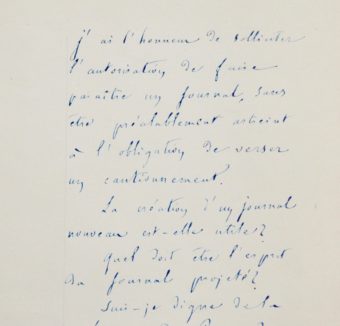 j'ai l'honneur de solliciter
l'autorisation de faire
paraître un journal, sans
être préalablement astreint
à l'obligation de verser
un cautionnement.
La création d'un journal
nouveau est-elle utile?
Quel doit être l'esprit
du journal projeté?
Suis-je digne de la